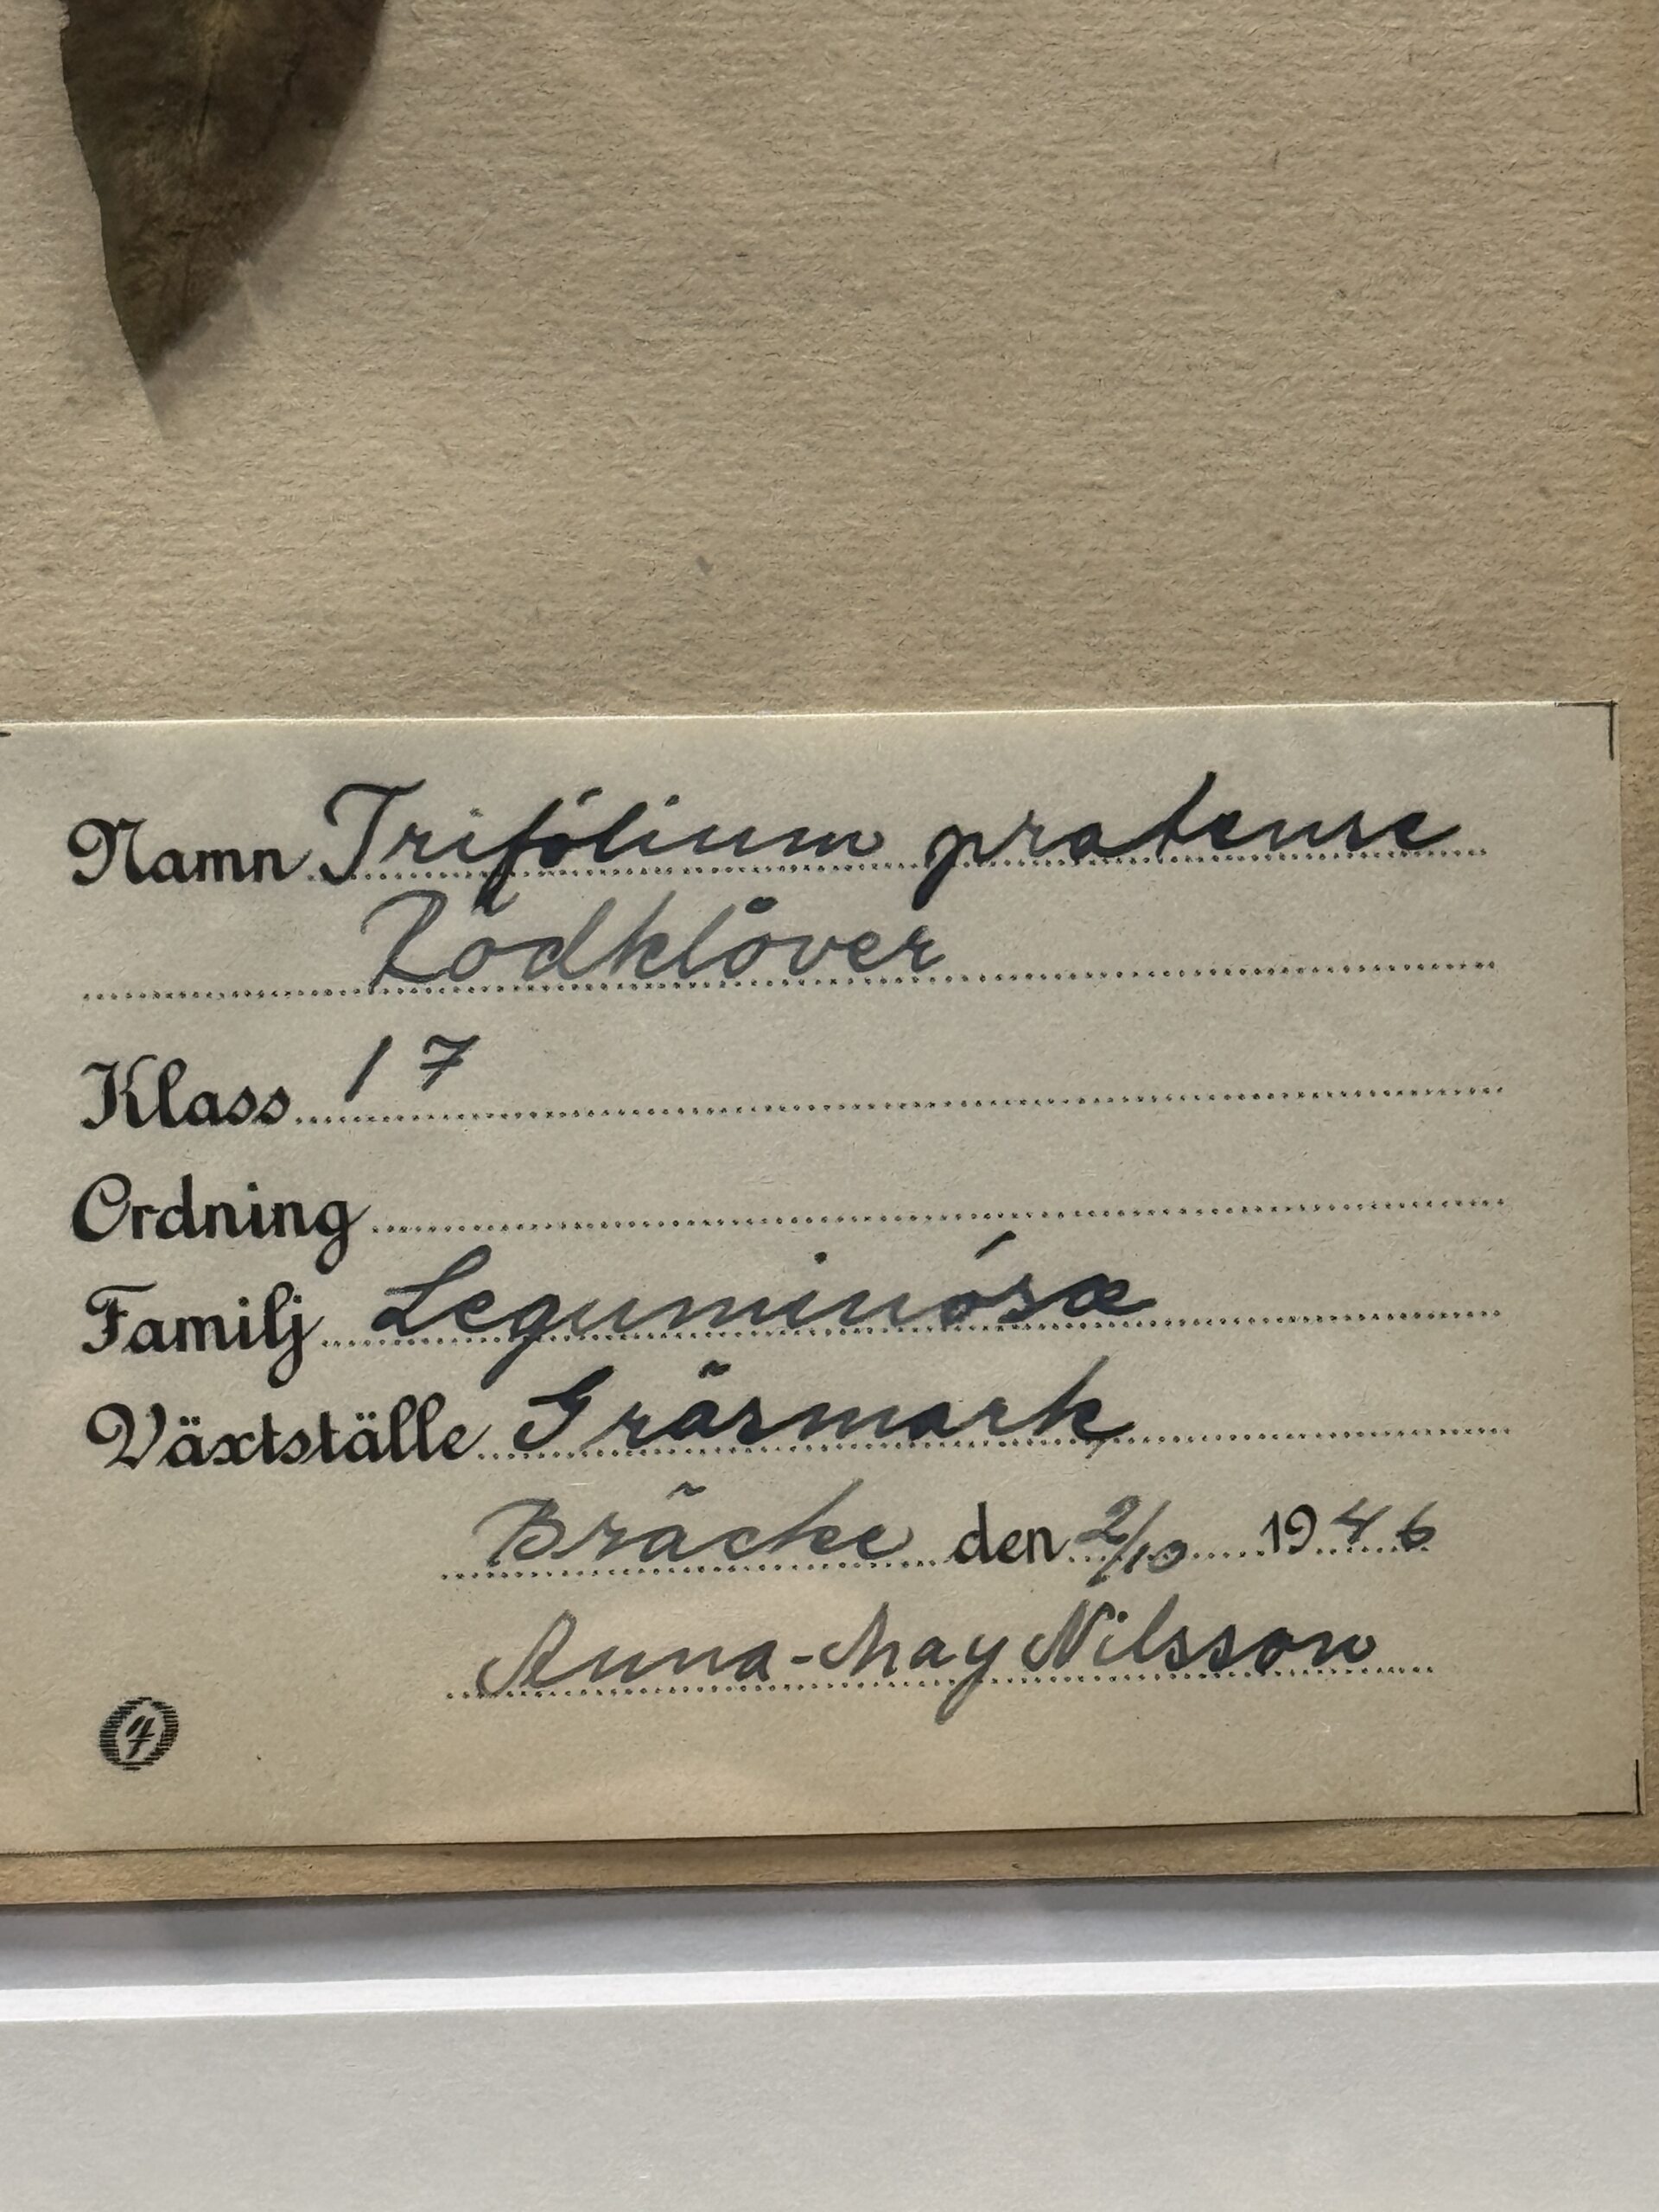 Namn Trifólium pratense
Rödklöver
Klass 17
Ordning
Familj Leguminósæ
Växtställe Gräsmark
Bräcke den 2/10 1946
Anna-May Nilsson
4